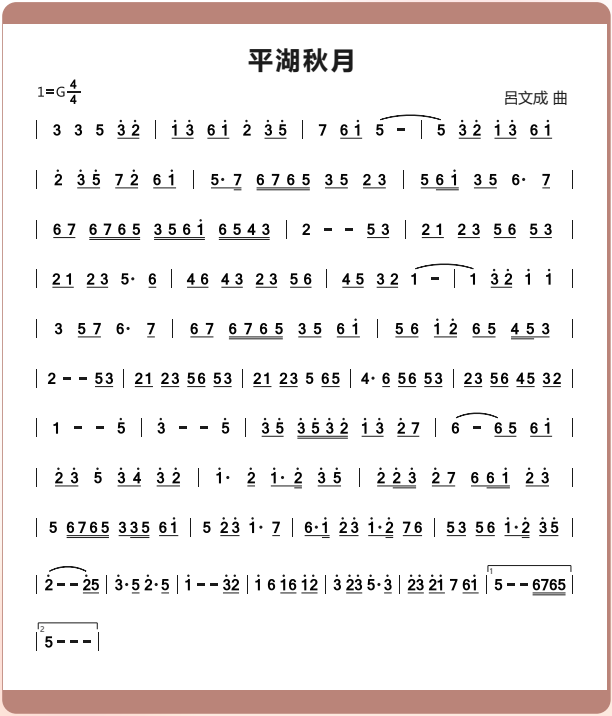 平湖秋月
1=G 4/4
吕文成 曲
| 3 3 5 3̇ 2̇ | 1̇ 3̇ 6 1̇ 2̇ 3̇ 5̇ | 7 6 1̇ 5 - | 5 3̇ 2̇ 1̇ 3̇ 6 1̇
| 2̇ 3̇ 5̇ 7 2̇ 6 1̇ | 5· 7 6 7 6 5 3 5 2 3 | 5 6 1̇ 3 5 6· 7 |
| 6 7 6 7 6 5 3 5 6 1̇ 6 5 4 3 | 2 - - 5 3 | 2 1 2 3 5 6 5 3 |
| 2 1 2 3 5· 6 | 4 6 4 3 2 3 5 6 | 4 5 3 2 1 - | 1 3̇ 2̇ 1̇ 1̇ |
| 3 5 7 6· 7 | 6 7 6 7 6 5 3 5 6 1̇ | 5 6 1̇ 2̇ 6 5 4 5 3 |
| 2 - - 5 3 | 2 1 2 3 5 6 5 3 | 2 1 2 3 5 6 5 | 4· 6 5 6 5 3 | 2 3 5 6 4 5 3 2 |
| 1 - - 5̇ | 3̇ - - 5̇ | 3̇ 5̇ 3̇ 5̇ 3̇ 2̇ 1̇ 3̇ 2̇ 7 | 6 - 6 5 6 1̇ |
| 2̇ 3̇ 5̇ 3̇ 4̇ 3̇ 2̇ | 1̇· 2̇ 1̇· 2̇ 3̇ 5̇ | 2̇ 2̇ 3̇ 2̇ 7 6 6 1̇ 2̇ 3̇ |
| 5 6 7 6 5 3 3 5 6 1̇ | 5 2̇ 3̇ 1̇· 7 | 6· 1̇ 2̇ 3̇ 1̇· 2̇ 7 6 | 5 3 5 6 1̇· 2̇ 3̇ 5̇ |
| 2̇ - - 2̇ 5 | 3̇· 5 2̇· 5 | 1̇ - - 3̇ 2̇ | 1̇ 6 1̇ 6 1̇ 2̇ | 3̇ 2̇ 3̇ 5̇· 3̇ | 2̇ 3̇ 2̇ 1̇ 7 6 1̇ | 1 5 - - 6 7 6 5 |
| 2 5 - - - |